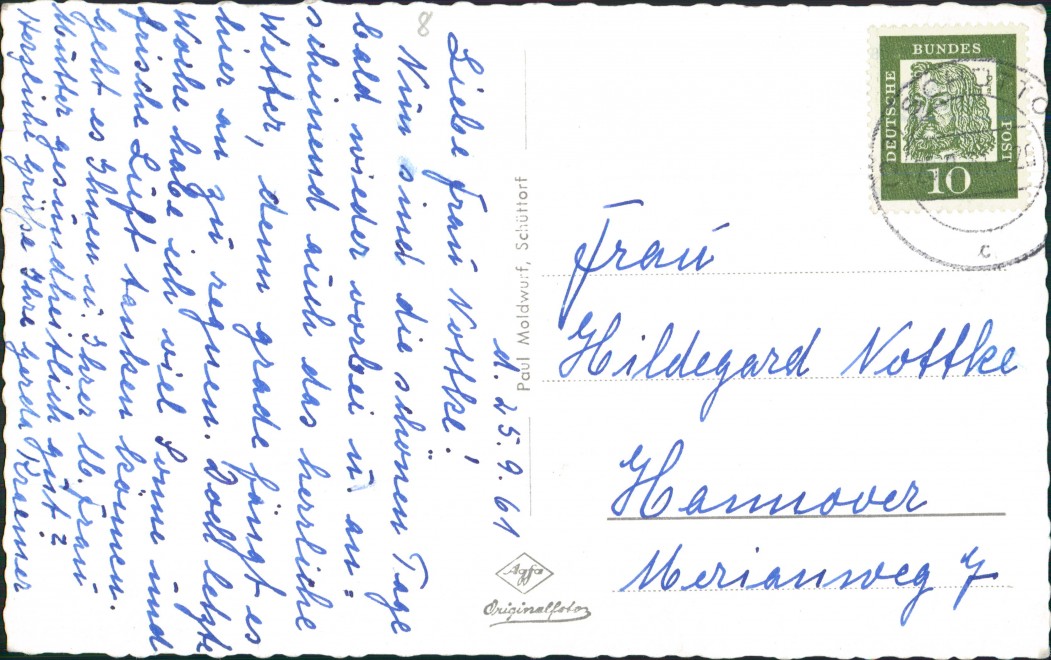 8
N. 25.9.61
Liebe Frau Nottke!
Nun sind die schönen Tage
bald wieder vorbei u. an=
scheinend auch das herrliche
Wetter, denn grade fängt es
hier an zu regnen. Doch letzte
Woche habe ich viel Sonne und
frische Luft tanken können.
Geht es Ihnen u. Ihrer lb. Frau
Mutter gesundheitlich gut?
Herzliche Grüße Ihre Gerda Kraemer
Paul Moldwurf, Schüttorf
Agfa
Originalfoto
DEUTSCHE
BUNDES
POST
10
c
Frau
Hildegard Nottke
Hannover
Merianweg 7